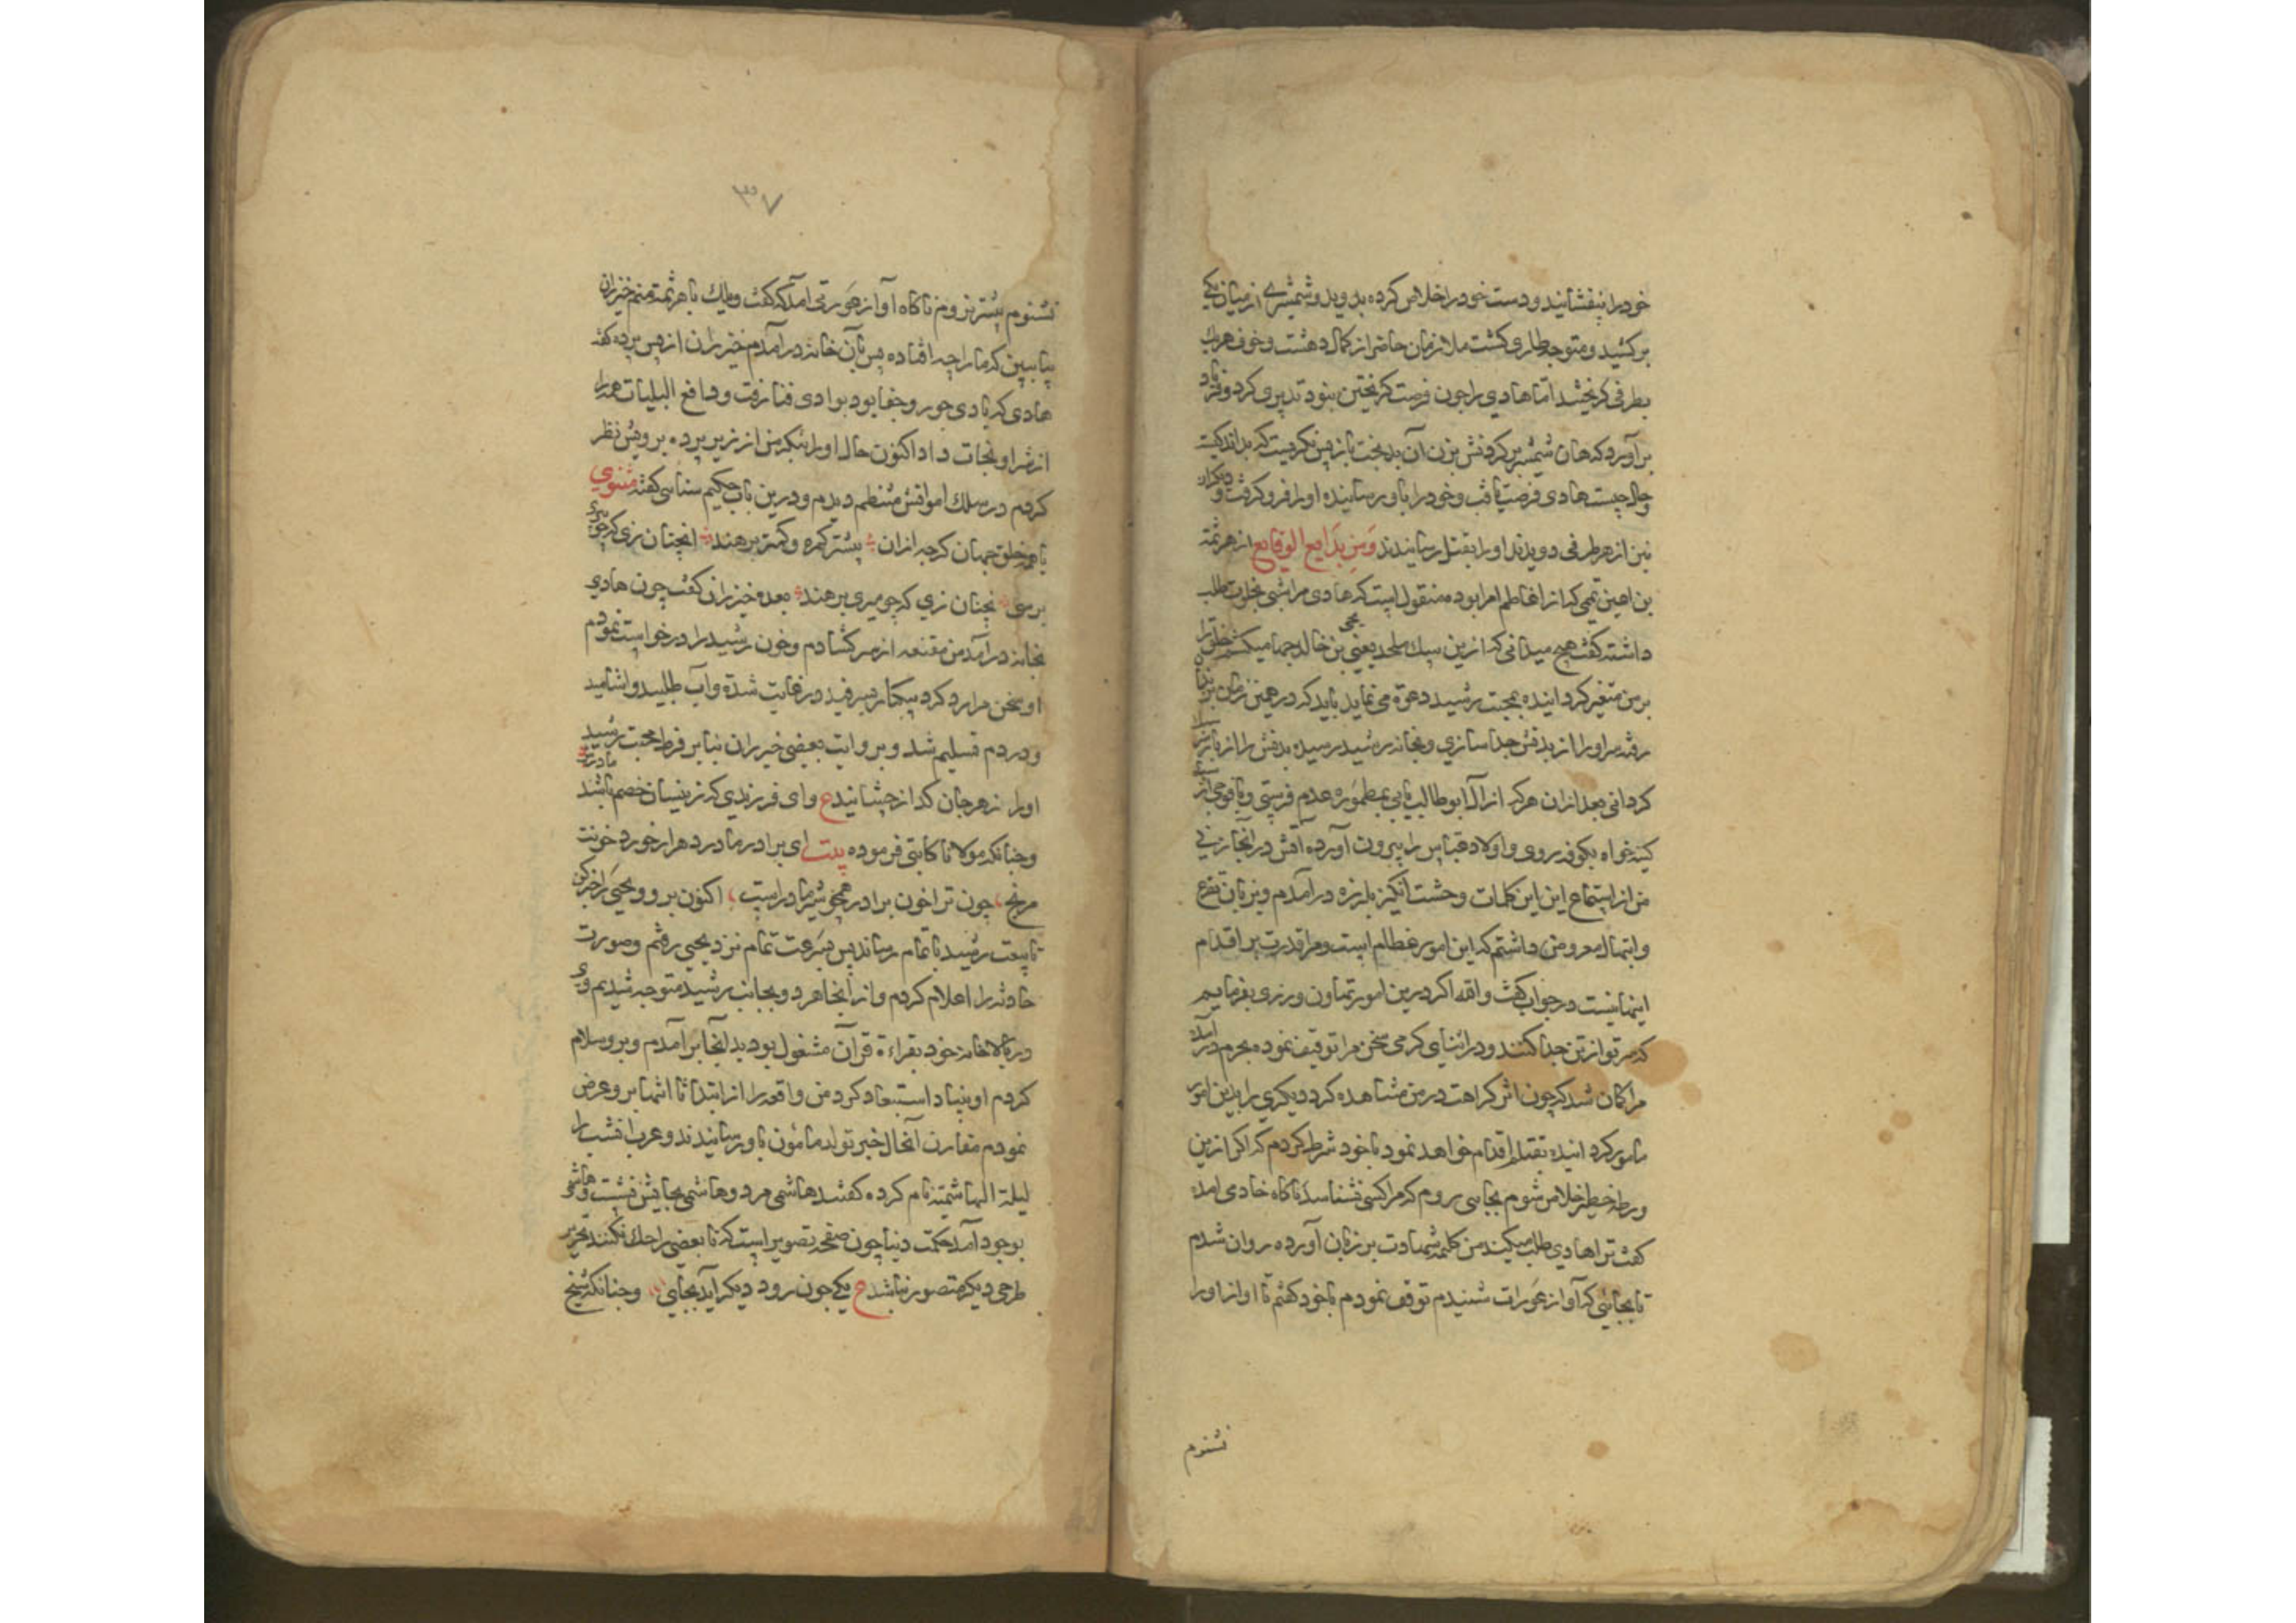 خود را بیفشانید و دست خود را خلاص کرده بدوید و شمشیری از میان یکی
برکشید و متوجه طاری کشت ملازمان حاضر از کمال دهشت و خوف هریک
بطرفی کریختند اما هادی را چون فرصت کریختن نبود تدبیری کرد و فریاد
برآورد که هان شمشیر برکردنش بزن آن بدبخت باز پس نکریست که بداند کیست
و حال چیست هادی فرصت یافت و خود را باو رسانیده او را فرو کرفت و دیکران
نیز از هر طرفی دویدند او را بقتل رسانیدند و من بدایع الوقایع از هرثمه
بن اعین تمیمی که از اعاظم امرا بوده منقول است که هادی مرا شبی بخلوت طلب
داشته کفت هیچ میدانی که ازین سک ملحد یعنی یحیی بن خالد چها میکشم خلق را
بر من متغیر کردانیده بمحبت رشید دعوة می نماید باید که در همین زمان بزندان
رفته سر او را از بدنش جدا سازی و بخانه رشید رسیده بدنش را از بار سر
کردانی بعد از آن هر که از آل ابوطالب یابی بمطموره عدم فرستی و با فوجی از
کینه خواه بکوفه روی و اولاد عباس را بیرون آورده آتش در آنجا زنی
من از استماع این کلمات وحشت انکیز بلرزه درآمدم و بزبان تضرع
و ابتهال معروض داشتم که این امور عظام است و مرا قدرت بر اقدام
اینها نیست در جواب کفت والله اکر درین امور تهاون ورزی بفرمایم
که سر تو از تن جدا کنند و در اثنای کرمی سخن مرا توقیف نموده بحرم درآمد
مرا کمان شد که چون اثر کراهت در من مشاهده کرد دیکری را بدین امور
مامور کردانیده بقتلم اقدام خواهد نمود با خود شرط کردم که اکر ازین
ورطه خطر خلاص شوم بجایی روم که مرا کسی نشناسد ناکاه خادمی آمده
کفت ترا هادی طلب میکند من کلمه شهادت بر زبان آورده روان شدم
تا بجائی که آواز عورات شنیدم توقف نمودم با خود کفتم تا آواز او را
نشنوم
۳۷
نشنوم پیشتر نروم ناکاه آواز عورتی آمد که کفت ویلک یا هرثمه منم خیزران
بیا ببین که ما را چه افتاده پس بآن خانه درآمدم خیزران از پس پرده کفت
هادی که بادی جور و جفا بود بوادی فنا رفت و دافع البلیات همه را
از شر او نجات داد اکنون حال او را بنکر من از زیر پرده برویش نظر
کردم در سلک اموات منتظم دیدم و درین باب حکیم سنایی کفته مثنوی
با همه خلق جهان کرچه از آن بیشتر کمره و کمتر برهند آنچنان زی که چو میری
برهی نچنان زی که چو میری برهند بعده خیزران کفت چون هادی
بخانه درآمد من مقنعه از سر کشادم و خون رشید را درخواست نمودم
او سخن مرا رد کرد بیکبار سرفید در غایت شدة و آب طلبید و آشامید
و در دم تسلیم شد و بروایت بعضی خیزران بنابر فرط محبت رشید
او را زهر جان کداز چشانید ع وای فرزندی که زینسان خصم باشد مادرش
و چنانکه مولانا کاتبی فرموده بیت ای برادر مادر دهر ار خورد خونت
مرنج چون ترا خون برادر همچو شیر مادر است اکنون برو و یحیی را خبر کن
تا بیعت رشید باتمام رساند پس بسرعت تمام نزد یحیی رفتم و صورت
حادثه را اعلام کردم و از آنجا هر دو بجانب رشید متوجه شدیم وی
در بالاخانه خود بقراءة قرآن مشغول بود بدانجا برآمدم و برو سلام
کردم او بنیاد استبعاد کرد من واقعه را از ابتدا تا انتها برو عرض
نمودم مقارن آنحال خبر تولد مامون باو رسانیدند و عرب آن شب را
لیلة الهاشمیة نام کرده کفتند هاشمی مرد و هاشمی بجایش نشست و هاشمی
بوجود آمد حکمت دنیا چون صفحه تصویر است که تا بعضی را حک نکنند تحریر
طرحی دیکر متصور نباشد ع یکی چون رود دیکر آید بجای و چنانکه شیخ